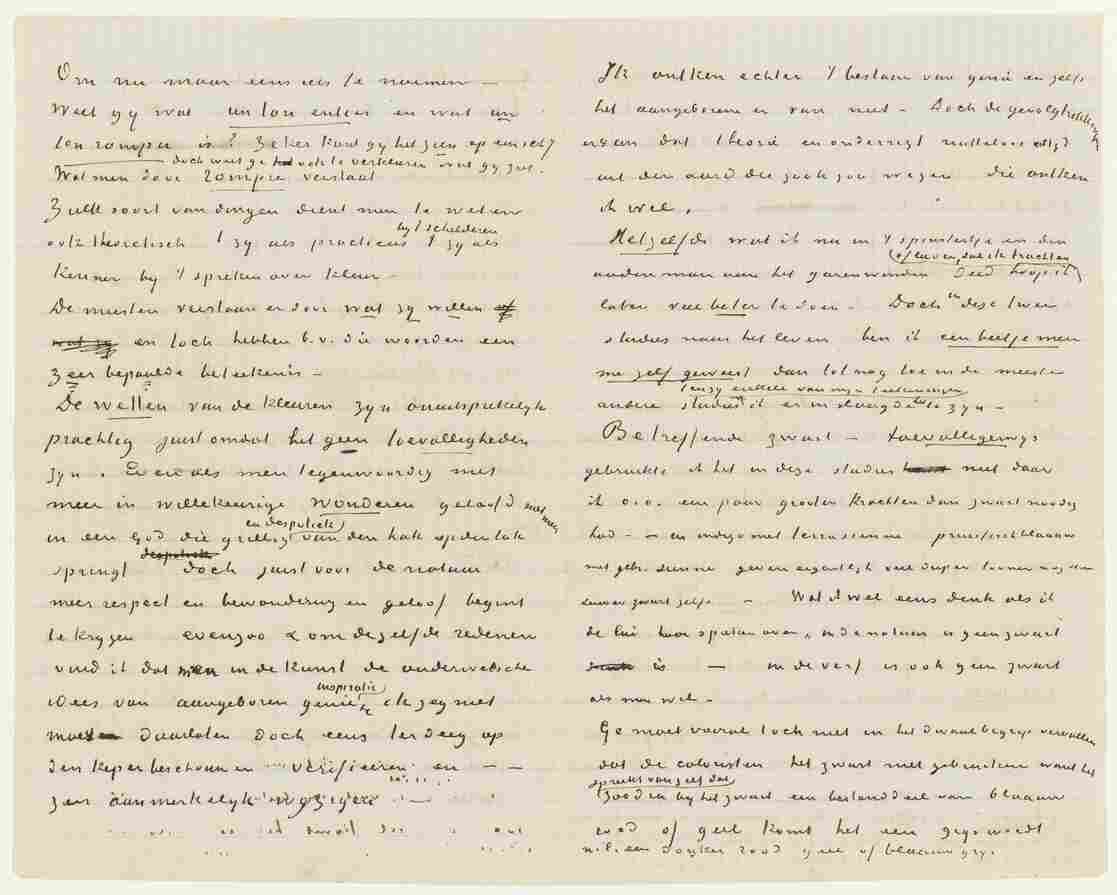 Om nu maar eens iets te noemen –
Weet gy wat un ton entier en wat un
ton rompu is? Zeker kunt gy het zien op een schy
doch weet ge het ook te verklaren wat gy ziet.
Wat men door rompre verstaat
Zulk soort van dingen dient men te weten
ook theoretisch 't zy als practicus by 't schilderen 't zy als
kenner by 't spreken over kleur –
De meesten verstaan er door wat zy willen of
wat zy en toch hebben b.v. die woorden een
zeer bepaalde beteekenis –
De wetten van de kleuren zyn onuitsprekelyk
prachtig juist omdat het geen toevalligheden
zyn. Evenals men tegenwoordig niet
meer in willekeurige wonderen gelooft niet meer
in een God die grillig en despotiek van den hak op den tak
springt despotiek doch juist voor de natuur
meer respect en bewondering en geloof begint
te krygen evenzoo & om dezelfde redenen
vind ik dat men in de kunst de ouderwetsche
idees van aangeboren genie inspiratie &c ik zeg niet
moet daarlaten doch eens terdeeg op
den keper beschouwen verifieeren en – –
zeer aanmerkelyk wyzigen –
Ik ontken echter 't bestaan van genie en zelfs
het aangeborene er van niet – Doch de gevolgtrekkingen
er van dat theorie en onderrigt nutteloos altyd
uit den aard der zaak zou wezen die ontken
ik wel.
Hetzelfde wat ik nu in 't spinstertje en den
ouden man aan het garenwinden deed hoop ik (of liever, zal ik trachten)
later veel beter te doen – Doch in deze twee
studies naar het leven ben ik een beetje meer
me zelf geweest dan tot nog toe in de meeste
andere studies (tenzy enkele van myn teekeningen) ik er in slaagde te zyn –
Betreffende zwart – toevalligerwys
gebruikte ik het in deze studies niet daar
ik o.a. een paar grooter krachten dan zwart noodig
had – – en indigo met terra sienna pruisischblaauw
met gebr. sienna geven eigentlyk veel dieper toonen nog dan
zuiver zwart zelfs – Wat ik wel eens denk als ik
de lui hoor spreken over, in de natuur is geen zwart
is – in de verf is ook geen zwart
als men wil –
Ge moet vooral toch niet in het dwaalbegrip vervallen
dat de coloristen het zwart niet gebruiken want het
spreekt van zelf dat
zoodra by het zwart een bestanddeel van blaauw
rood of geel komt het een grys wordt
n.l. een donker rood geel of blaauw grys.